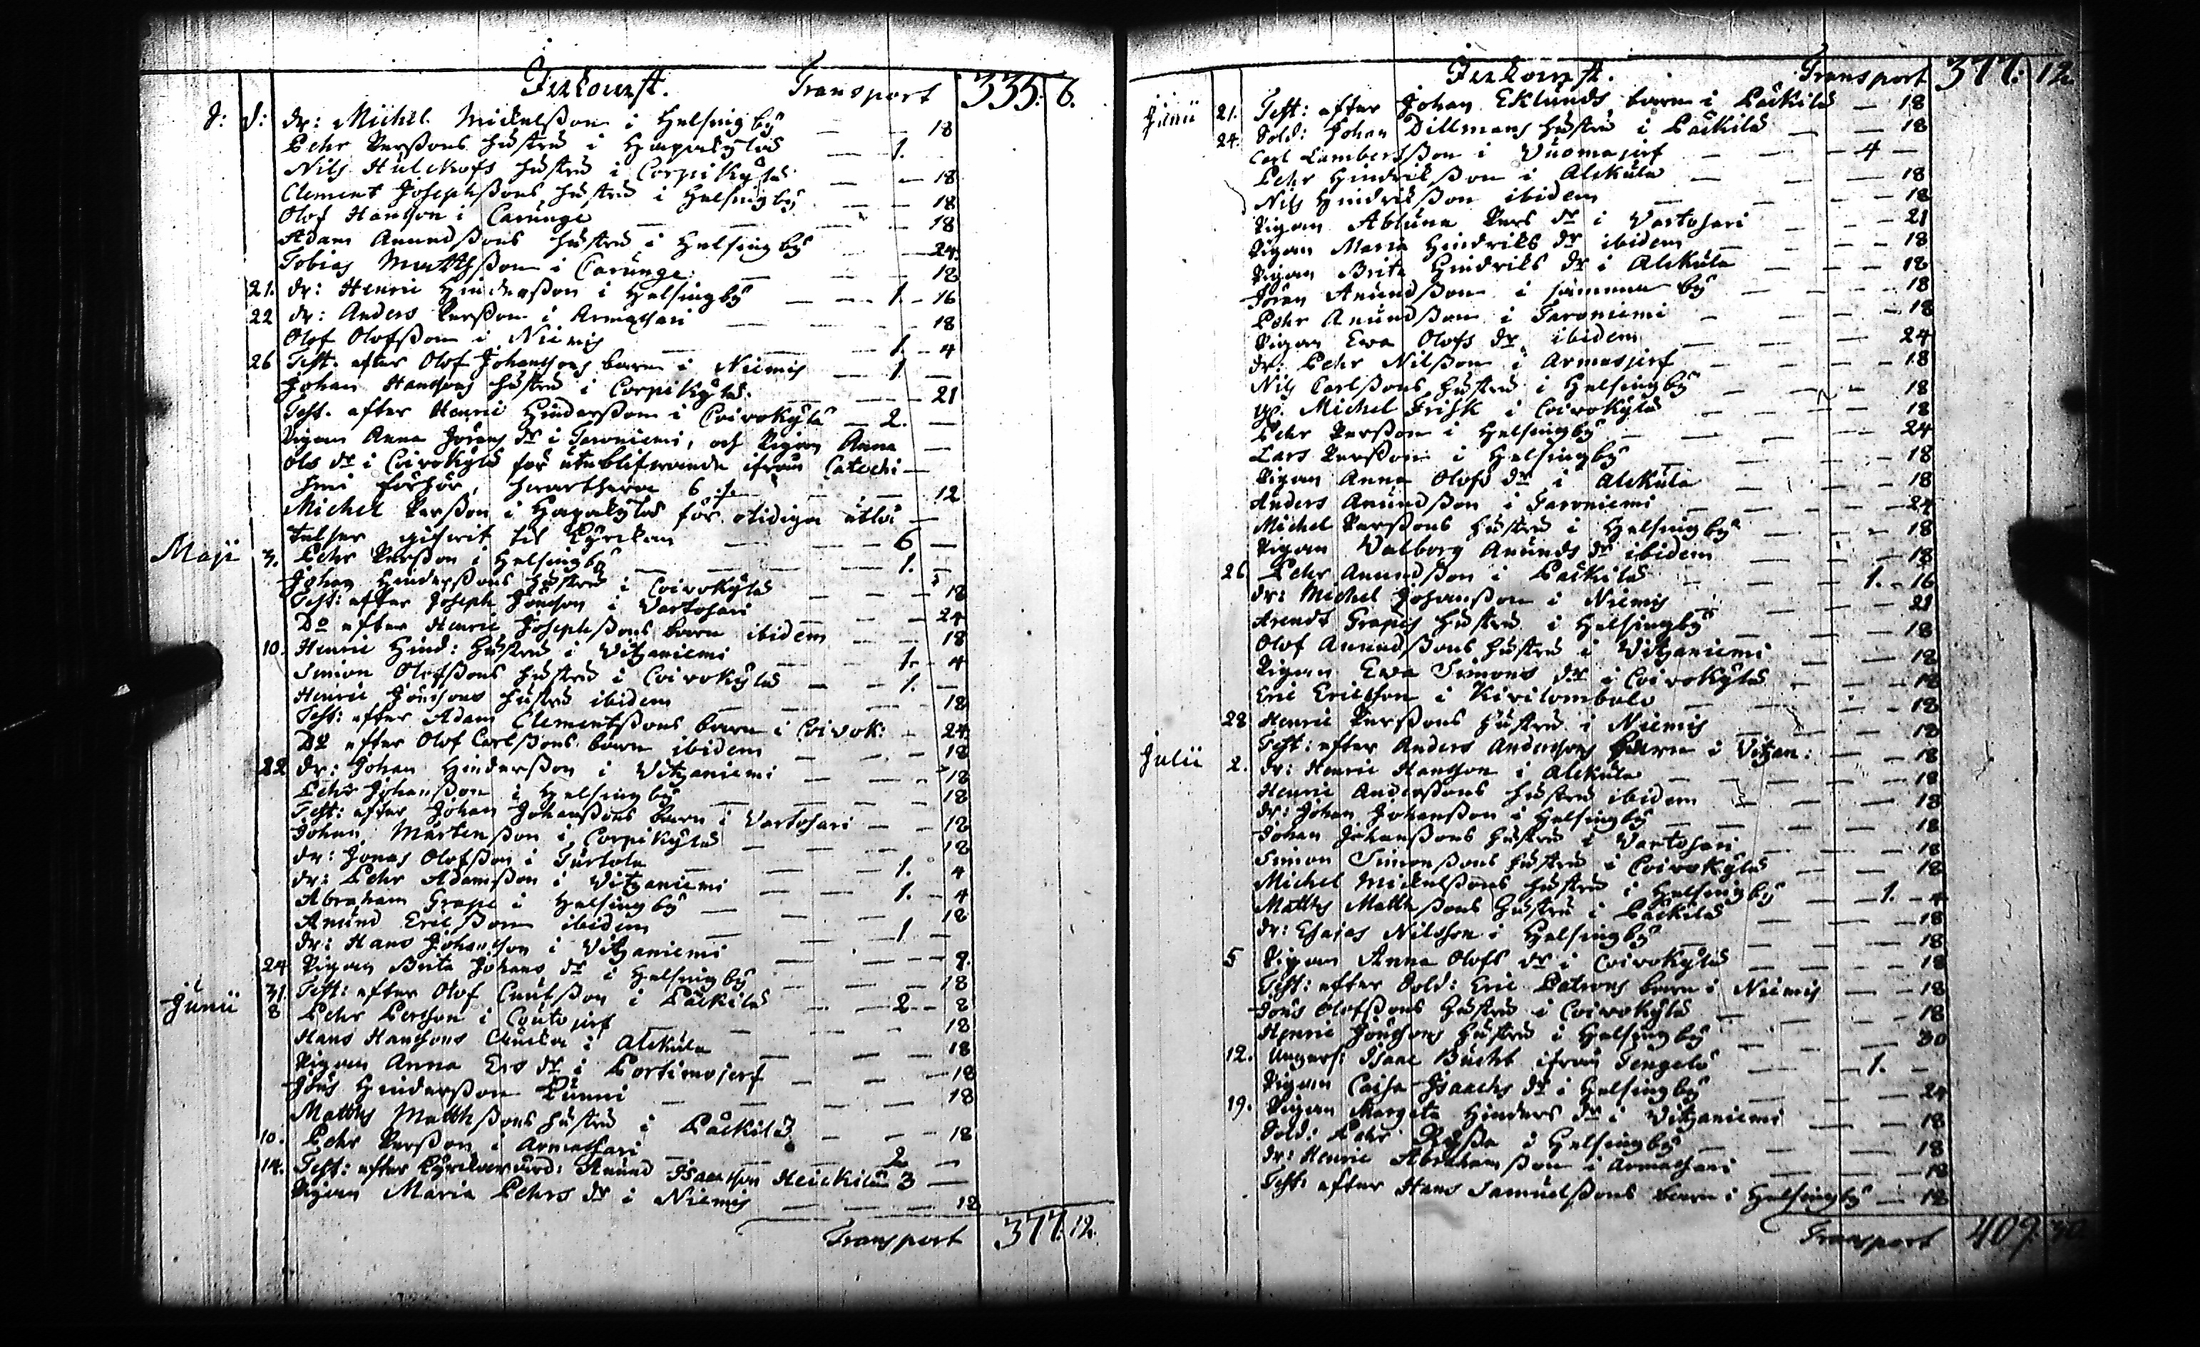 Inkomst. Transport 335: 6.
d: d: dr: Michel Mickelsson i Helsingby — 18
Pehr Perssons hustru i Haapakylä — 1.
Nils Hulckofs hustru i Corpikylä — 18
Clement Josephssons hustru i Helsingby — 18
Olof Hansson i Carunge — 18
Adam Anundssons hustru i Helsingby — 24.
Tobias Matthsson i Carunge — 18
21. dr: Henric Hindersson i Helsingby — 1 — 16
22 dr: Anders Persson i Armassari — 18
Olof Olofsson i Niemis — 1. 4
26 Test. efter Olof Johanssons barn i Niemis — 1 —
Johan Hanssons hustru i Corpikylä — 21
Test. efter Henric Hindersson i Coivokylä — 2. —
Pigan Anna Jörans dr i Taroniemi, och Pigan Anna —
Ols dr i Coivokylä för uteblifwande ifrån Catechi —
smi förhör, hwarthera 6 — 12
Michel Persson i Haapakylä för otidiga utlå —
telser gifwit til Kyrckan — 6 —
Maji 3. Pehr Persson i Helsingby — 1. —
Johan Hinderssons hustru i Coivokylä — 18
Test: efter Joseph Jönsson i Vartosari — 24
Do efter Henric Josephssons barn ibidem — 18
10. Henric Hind: hustru i Vitzaniemi — 1. 4
Simon Olofssons hustru i Coivokylä — 1. —
Henric Jönssons hustru ibidem — 18
Test: efter Adam Clementssons barn i Coivok: — 24
Do efter Olof Carlssons barn ibidem — 18
22 dr: Johan Hindersson i Vitzaniemi — 18
Pehr Johansson i Helsingby — 18
Test: efter Johan Johanssons barn i Vartosari — 12
Johan Mårtensson i Corpikylä — 18
dr: Jonas Olofsson i Turtola — 1. 4
dr: Pehr Adamsson i Vitzaniemi — 1. 4
Abraham Grape i Helsingby — 18
Anund Ericsson ibidem — 1 —
dr: Hans Johansson i Vitzaniemi — 9.
24 Pigan Brita Johans dr i Helsingby — 18
31 Test: efter Olof Cnutsson i Päckilä — 2 — 8
Junii 8 Pehr Persson i Coutojerf — 18
Hans Hanssons i Alckula — 18
Pigan Anna Ers dr i Portimojerf — 18
Jöns Hindersson — 18
Matths Matthssons hustru i Päckilä — 18
10. Pehr Persson i Armassari — 2 —
14. Test: efter Kyrckovärd: Anund Isacsson Heickilä 3 —
Pigan Maria Pehrs dr i Niemis — 12
Transport 377. 12.
Inkomst. Transport 377: 12.
Junii 21. Test: efter Johan Eklunds barn i Päckilä — 18
24. Sold: Johan Dillmans hustru i Päckilä — 18
Carl Lambertsson i Vuomajerf — 4 —
Pehr Hindricksson i Alckula — 18
Nils Hindricksson ibidem — 18
Pigan Abluna Pers dr i Vartosari — 21
Pigan Maria Hindriks dr ibidem — 18
Pigan Brita Hindriks dr i Alckula — 18
Jöran Anundsson i samma by — 18
Pehr Anundsson i Taroniemi — 18
Pigan Ewa Olofs dr ibidem — 24
dr: Pehr Nilsson i Armasjerf — 18
Nils Carlssons hustru i Helsingby — 18
Michel Frisk i Coivokylä — 18
Pehr Persson i Helsingby — 24
Lars Persson i Helsingby — 18
Pigan Anna Olofs dr i Alckula — 18
Anders Anundsson i Taroniemi — 24
Michel Perssons hustru i Helsingby — 18
Pigan Walborg Anunds dr ibidem — 18
26 Pehr Anundsson i Päckilä — 1. — 16
dr: Michel Johansson i Niemis — 21
Arendt Grapes hustru i Helsingby — 18
Olof Anundssons hustru i Vitzaniemi — 18
Pigan Ewa Simons dr i Coivokylä — 18
Eric Ericsson i Kirilombolo — 18
28 Henric Perssons hustru i Niemis — 18
Test: efter Anders Anderssons barn i Vitzan: — 18
Julii 2. dr: Henric Hansson i Alckula — 18
Henric Anderssons hustru ibidem — 18
dr: Johan Johansson i Helsingby — 18
Johan Johanssons hustru i Vartosari — 18
Simon Simonssons hustru i Coivokylä — 18
Michel Mickelssons hustru i Helsingby — 1. — 4
Matths Matthssons hustru i Päckilä — 18
dr: Esaias Nilsson i Helsingby — 18
5 Pigan Anna Olofs dr i Coivokylä — 18
Test: efter Sold: Eric Patrons barn i Niemis — 18
Jöns Olofssons hustru i Coivokylä — 18
Henric Jönssons hustru i Helsingby — 30
12. Ungersv: Isaac Bucht ifrån Tengelö — 1. —
Pigan Caisa Isaachs dr i Helsingby — 24
19. Pigan Margeta Hinders dr i Vitzaniemi — 18
Sold: Pehr i Helsingby — 18
dr: Henric Abrahamsson i Armassari — 18
Test: efter Hans Samuelssons barn i Helsingby — 12
Transport 409. 30